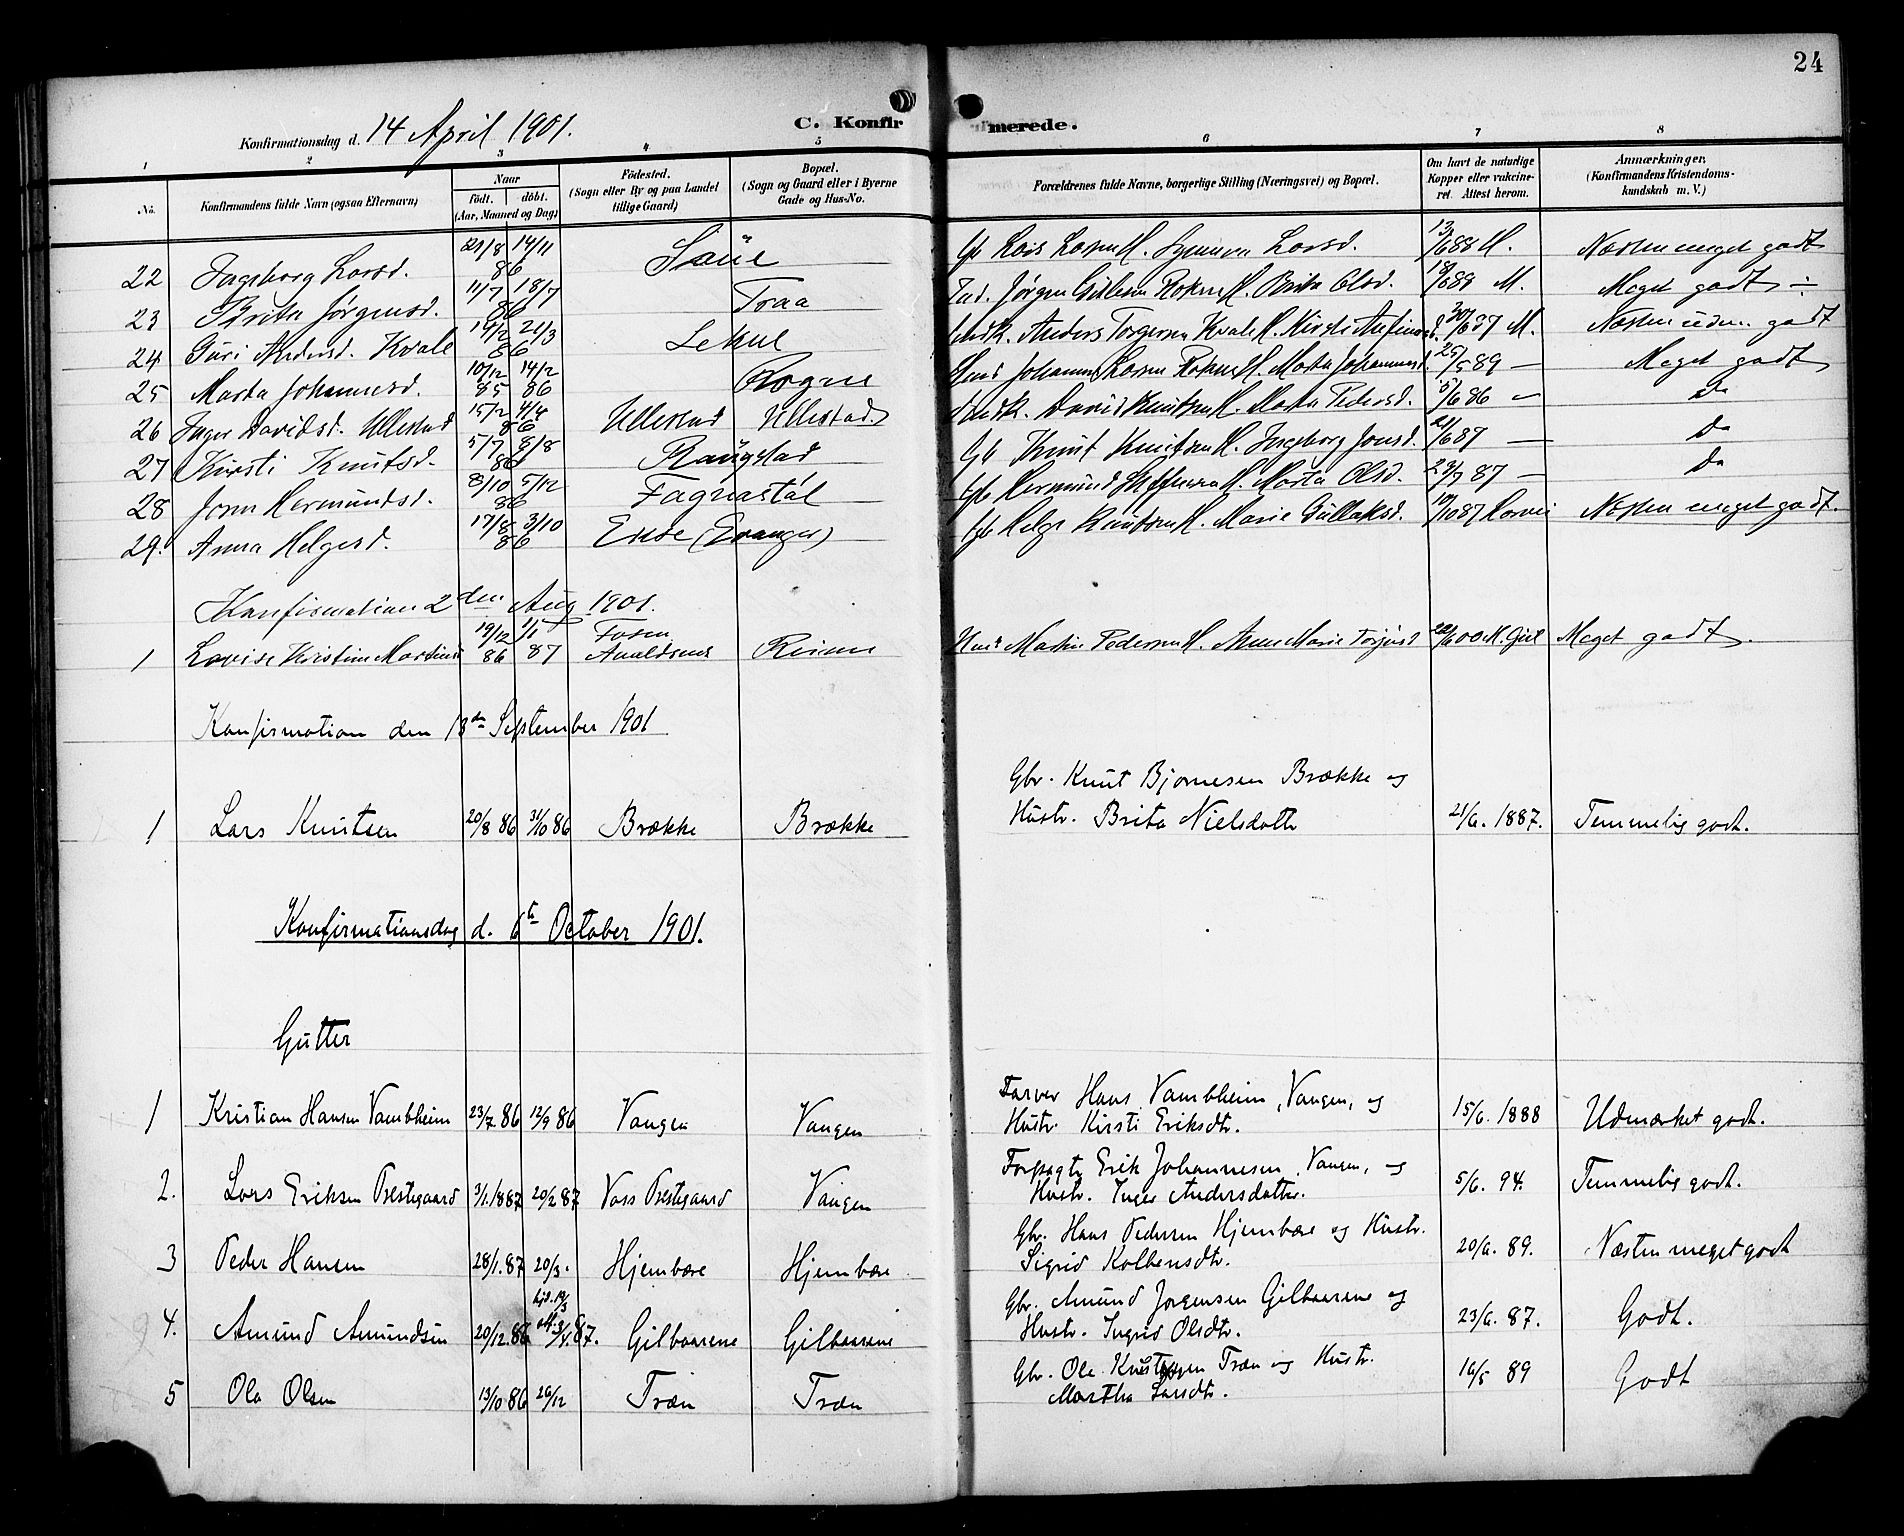 24
Konfirmationsdag d. 14 April 1901.
C. Konfir merede.
1 2 3 4 5 6 7 8
No. Konfirmandens fulde Navn (ogsaa Efternavn) Naar födt. döbt. (Aar, Maaned og Dag) Födested. (Sogn eller By og paa Landet tillige Gaard) Bopæl. (Sogn og Gaard eller i Byerne Gade og Hus-No. Forældrenes fulde Navne, borgerlige Stilling (Næringsvei) og Bopæl. Om havt de naturlige Kopper eller vakcineret. Attest herom. Anmærkninger. (Konfirmandens Kristendomskundskab m. V.)
22 Ingeborg Larsd. 14/11 86 Gb Lars Larsen M. Synneva Larsd. 13/6 88 M. Næsten meget godt
23 Brita Jørgensd. 11/7 18/7 86 Traa Jørgen Rokne M. Brita Olsd. 18/6 89 M. Meget godt ÷
24 Guri Andersd. Kvale 14/2 21/3 86 Lekve Anders Torgersen Kvale M. Kirsti 30/6 87 M. Næsten godt
25 Marta Johannesd. 10/12 85 14/2 86 Rogne Johannes Larsen Rokne M. Marta Johannesd. 25/5 89 — Meget godt
26 Inger Davidsd. Ullestad 15/2 4/4 86 Ullestad Ullestad David Knutsen M. Marta Pedersd. 5/6 86 — Do
27 Kirsti Knutsd. 5/7 8/8 86 Raugstad Gb Knut Knutsen M. Ingeborg Jonsd. 21/6 87 — Do
28 Joren Hermundsd. 8/10 5/12 86 Fagnastøl Gb Hermund M. Marta Olsd. 23/7 87 — Do
29. Anna Helgesd. 17/8 3/10 86 Ekse (Evanger) Gb Helge Knutsen M. Marie Gullaksd. 19/10 87 Næsten meget godt.
Konfirmation 2 den Aug 1901.
1 Lovise Kristine 19/12 86 1/1 87 Rein Martin Pedersen M. Anne Marie 22/6 00 M. Meget godt.
Konfirmation den 13de September 1901
Gbr. Knut Bjornesen Brække og
1 Lars Knutsen 20/8 86 31/10 86 Brække Brække Hustr. Brita Nielsdatte 21/6. 1887. Temmelig godt.
Konfirmationsdag d. 6te October 1901.
Gutter
Farver Hans Vambheim, Vangen, og
1 Kristian Hansen Vambheim 23/7 86 12/9 86 Vangen Vangen Hustr. Kirsti Eriksdtr. 15/6. 1888 Udmærket godt.
Forpagte Erik Johannesen, Vangen, og
2. Lars Eriksen Prestegaard 3/1.1887 20/2 87 Voss Prestegaard Vangen Hustr. Inger Andersdatter. 5/6. 94. Temmelig godt.
Gbr. Hans Pedersen Hjembøre og Hustr.
3 Peder Hansen 28/1.87 20/3. Hjembøre Hjembøre Sigrid Kolbensdtr. 20/6. 89. Næsten meget godt
Gbr. Amund Jorgensen Gilbaarene og
4. Amund Amundsen 20/12.86 hjd. 19/3 3/4.87. Gilbaarene Gilbaarene Hustr. Ingrid Olsdtr. 23/6. 87. Godt.
Gbr. Ole Knutsen Træn og Hustr.
5 Ola Olsen 13/10 86 26/12 Træn Træn Martha Larsdtr. 16/5 89 Godt